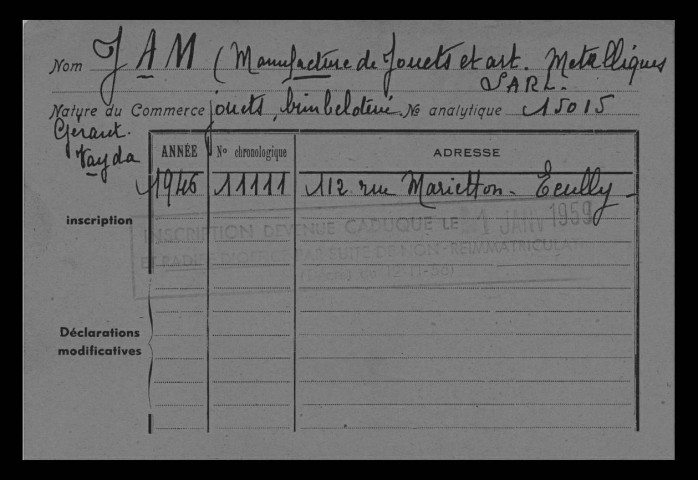 Nom JAM (Manufacture de Jouets et art. Metalliques
SARL.
Nature du Commerce jouets, bimbeloterie. No analytique 15015
Gerant.
Vayda
ANNÉE No chronologique ADRESSE
inscription 1946 11111 112 rue Marietton - Ecully -
INSCRIPTION DEVENUE CADUQUE LE 1 JANV 1959
ET RADIÉE D'OFFICE PAR SUITE DE NON-REIMMATRICULAT
Déclarations
modificatives